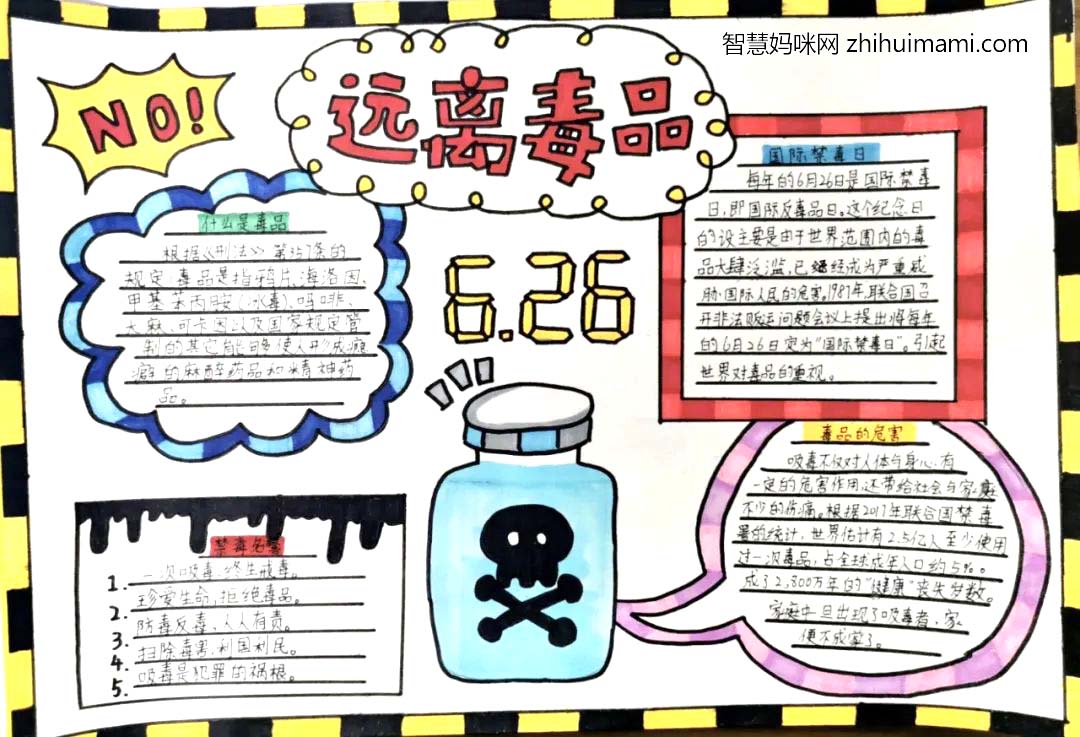 智慧妈咪网 zhihuimami.com
NO!
远离毒品
什么是毒品
根据《刑法》第357条的
规定,毒品是指鸦片、海洛因、
甲基苯丙胺(冰毒)、吗啡、
大麻、可卡因以及国家规定管
制的其它能够使人形成瘾
癖的麻醉药品和精神药
品。
6.26
国际禁毒日
每年的6月26日是国际禁毒
日,即国际反毒品日。这个纪念日
的设主要是由于世界范围内的毒
品大肆泛滥,已经成为严重威
胁国际人民的危害。1987年,联合国召
开非法贩运问题会议上提出将每年
的6月26日定为“国际禁毒日”。引起
世界对毒品的重视。
禁毒名言
1. 一次吸毒、终生戒毒。
2. 珍爱生命,拒绝毒品。
3. 防毒反毒、人人有责。
4. 扫除毒害、利国利民。
5. 吸毒是犯罪的祸根。
毒品的危害
吸毒不仅对人体与身心有
一定的危害作用,还带给社会与家庭
不少的伤痛。根据2017年联合国禁毒
署的统计,世界估计有2.5亿人至少使用
过一次毒品,占全球成年人口约5%。
成了2,800万年的“健康”丧失岁数。
家庭中一旦出现了吸毒者,家
便不成家了。